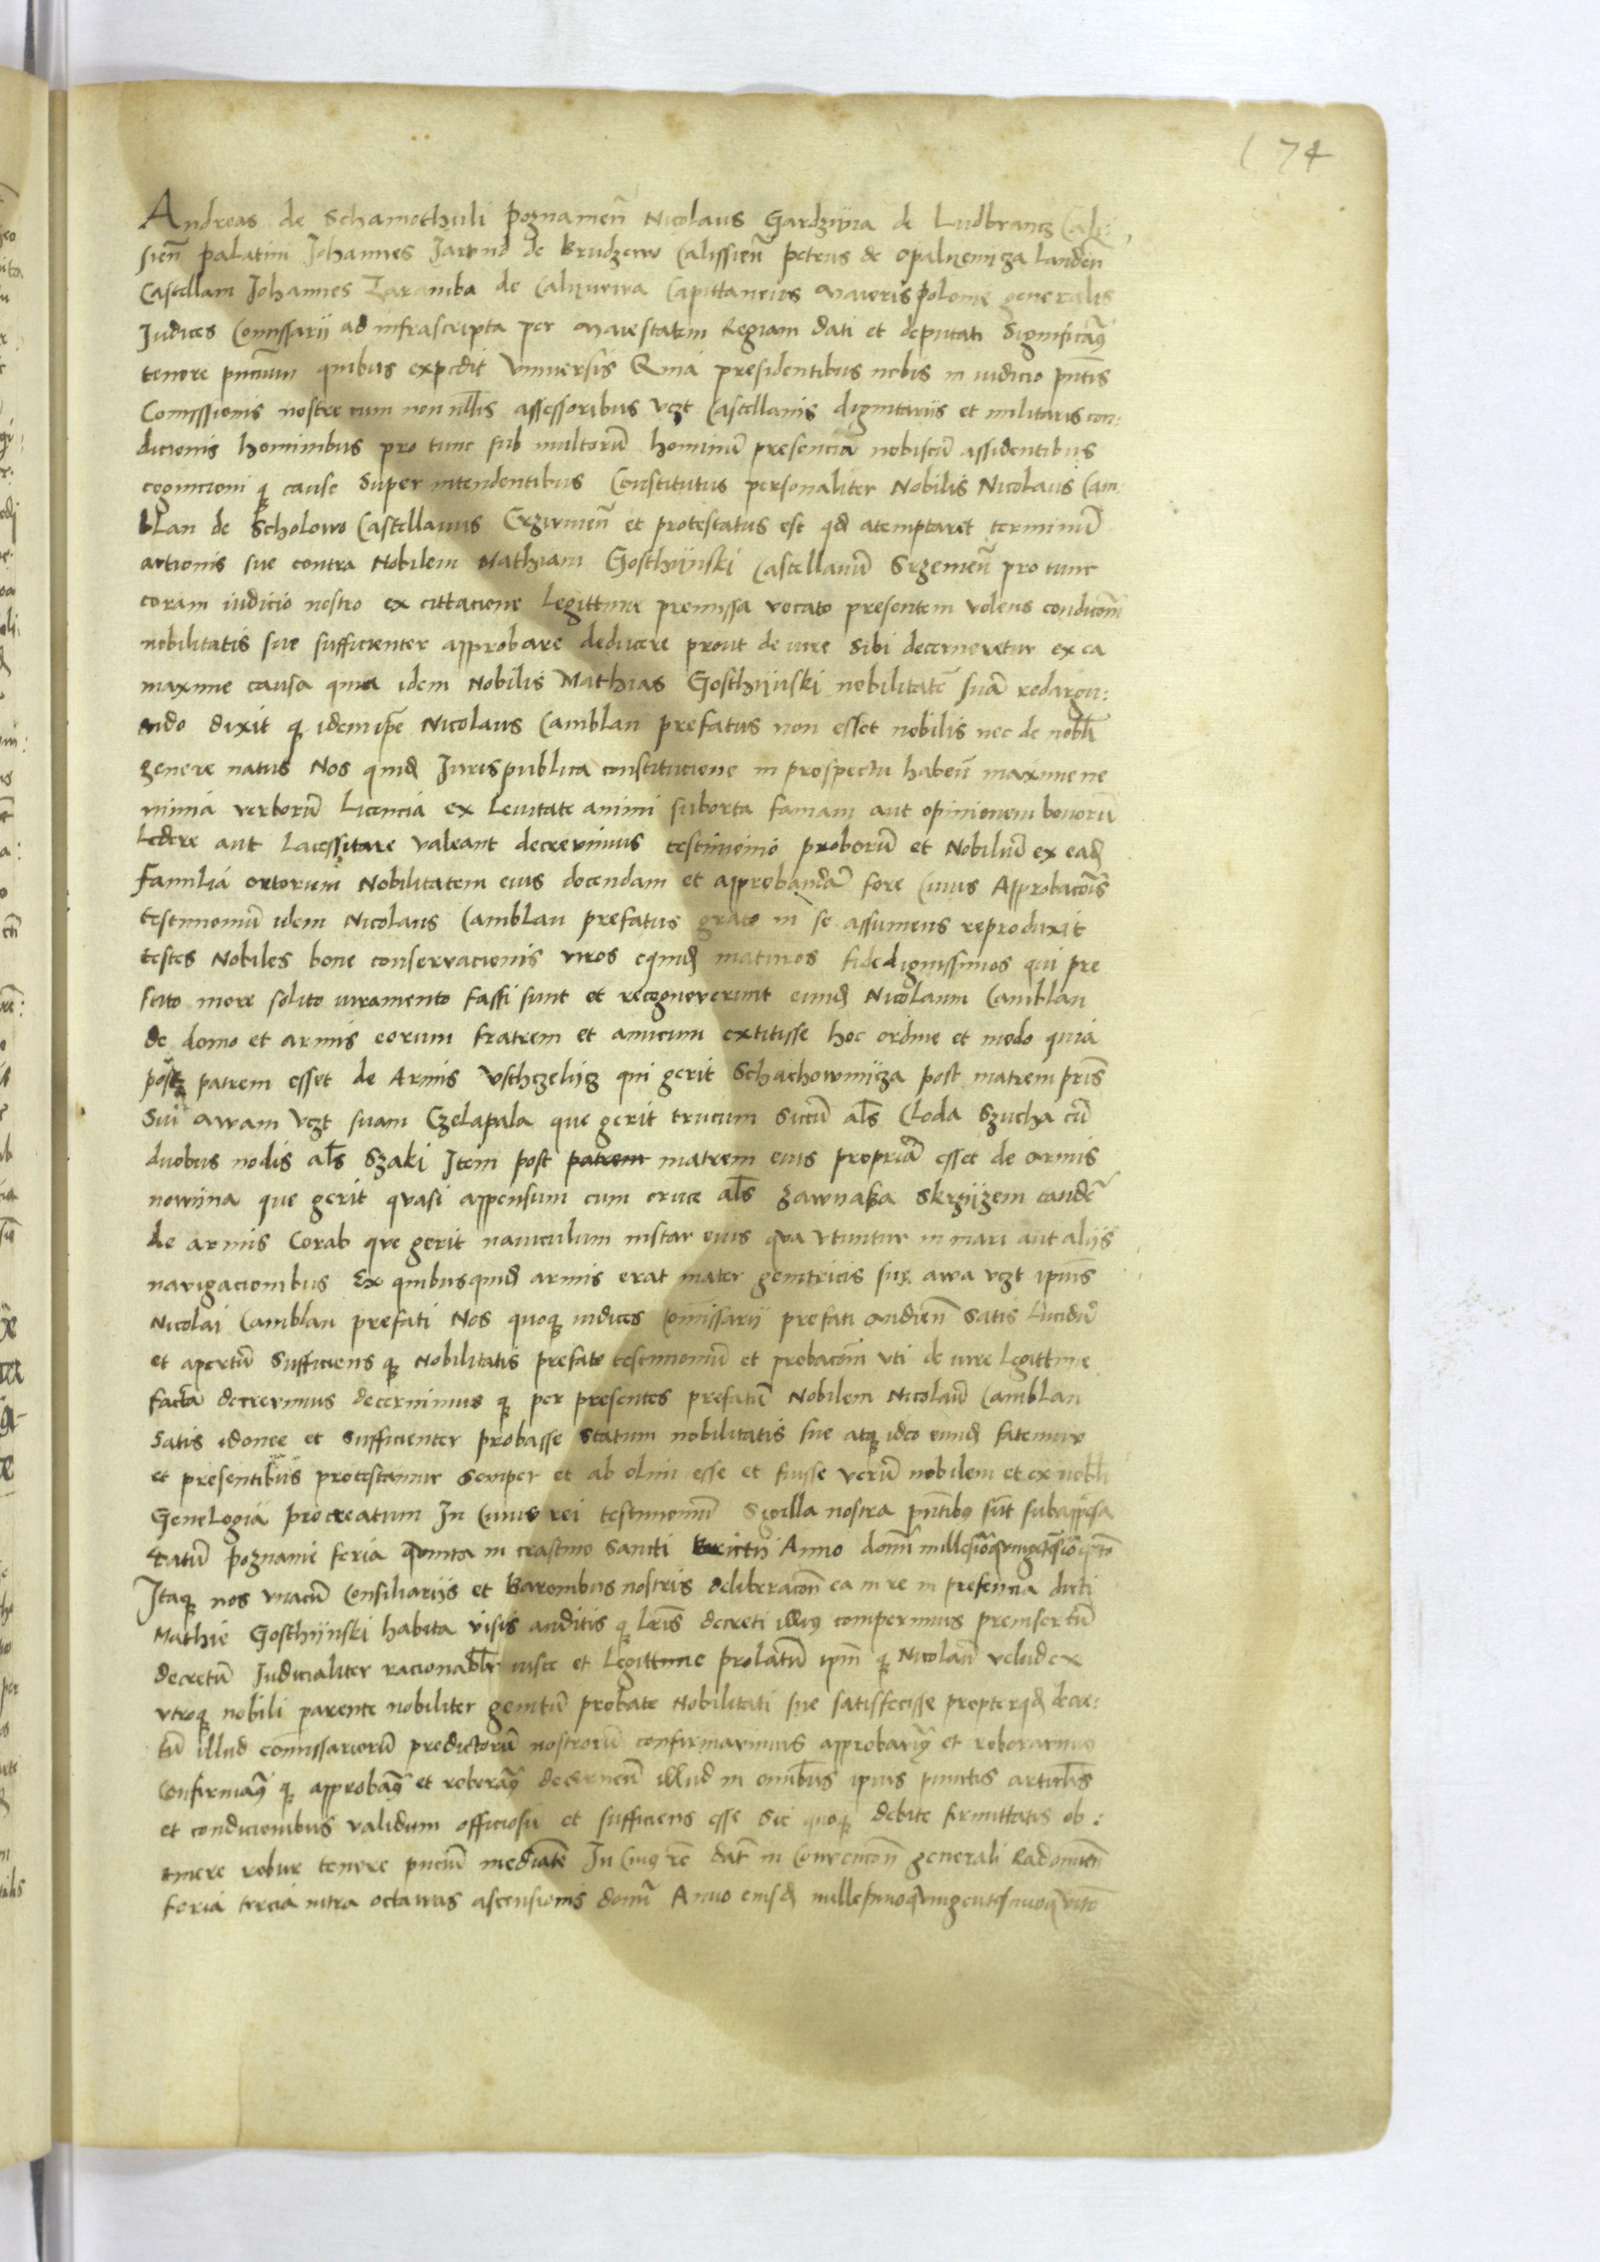 174
Andreas de Schamothuli Poznamen̄ Nicolaus Gardzÿna de Ludbrancz Cali:
sien̄ palatini Johannes Jarand de Brudzewo Calissien̄ Petrus de Opalyenicza Landen̄
Castellani Johannes Zaramba de Calynowa Capittaneus Maioris polonie generalis
Iudices Comissarii ad infrascripta per Maiestatem Regiam dati et deputati Significamꝰ
tenore pn̄cium quibus expedit Vniuersis Quia presidentibus nobis in iudicio pn̄tis
Comissionis nostre cum non nullis assessoribus vczt Castellanis dignitariis et militaris con:
dicionis hominibus pro tunc sub multorū hominū presencia nobiscū assidentibus
cognicioni qꝫ cause Superintendentibus Constitutus personaliter Nobilis Nicolaus Cam
blan de Scholowo Castellanus et protestatus est qd atemptaret terminū
actionis sue contra Nobilem Mathiam Gosthÿnski Castellanū Srzemen̄ pro tunc
coram iudicio nostro ex cittacione Legittime premissa vocato presentem volens condicōm
nobilitatis sue sufficienter approbare deducere prout de iure Sibi decerneretur ex ea
maxime causa quia idem Nobilis Mathias Gosthÿnski nobilitatē suā redargu:
endo dixit qꝫ idem ip̄e Nicolaus Camblan prefatus non esset nobilis nec de nobli
genere natus Nos quidē Iurispublica constitucione in prospectu haben̄ maxime ne
nimia verborū Licencia ex Levitate animi suborta famam aut opinionem bonorū
Ledere aut Lacessitare valeant decrevimus testimonio proborū et Nobiliū ex eadē
familia ortorum Nobilitatem eius docendam et approbandā fore Cuius Approbacōis
testimoniū idem Nicolaus Camblan prefatus grato in se assumens reproduxit
testes Nobiles bone conservacionis viros equidē maturos fidedignissimos qui pre
stito more solito iuramento fassi sunt et recognoverunt eundē Nicolaum Camblan
de domo et armis eorum fratrem et amicum extitisse hoc ordine et modo quia
post patrem esset de Armis qui gerit Schachownÿcza post matrem pr̄is
Sui Avvam vczt suam Czelapala que gerit trucum Siccū al̄s Cloda Szucha cū
duobus nodis al̄s Szaki Item post patrem matrem eius propriā esset de armis
nowina que gerit quasi appensum cum cruce al̄s zawnaka Skrzÿzem
de armis Corab que gerit naviculum instar eius qua vtuntur in mari aut aliis
navigacionibus Ex quibusquidē armis erat mater genitricis sue awa vczt ipius
Nicolai Camblan prefati Nos quoqꝫ iudices Comissarii prefati audien̄ Satis Lucidū
et apertū Sufficiens qꝫ Nobilitatis prefate testimoniū et probacōm vti de iure Legittime
facta decrevimus decernimus qꝫ per presentes prefatū Nobilem Nicolaū Camblan
Satis idonee et Sufficienter probasse Statum nobilitatis sue atqꝫ ideo eundē fatemur
et presentibus protestamur Semper et ab olim esse et fuisse verū nobilem et ex nobli
Genelogia procreatum In Cuius rei testimoniū Sigilla nostra pn̄tibꝰ sūt subappēsa
Datū Poznanie feria quinta in crastino Sancti Brictii Anno domī millesimoquingētesimoqrto
Itaqꝫ nos vnacū Consiliariis et Baronibus nostris deliberacōn ea in re in presencia dicti
Mathie Gosthÿnski habita visis auditis qꝫ Lrīs decreti illiꝰ comperimus preinsertū
decretū Iudicialiter racionablr iuste et Legittime prolatū ipm̄ qꝫ Nicolaū velud ex
vtroqꝫ nobili parente nobiliter genitū probate Nobilitati sue satisfecisse propterqd decre:
tū illud comissariorū predictorū nostrorū confirmavimus approbavimꝰ et roboravimus
Confirmamꝰ qꝫ approbamꝰ et roboramꝰ decernen̄ illud in omībus ipius punctis articulis
et condicionibus validum officiosū et sufficiens esse Sic quoqꝫ debite firmittatis ob:
tinere robur tenore pn̄cium mediante In Cuiꝰ rē Dat̄ in Convencōn generali Radomien̄
feria tercia intra octavas ascensionis domī Anno eiusdē millesimoquingentesimoquīto